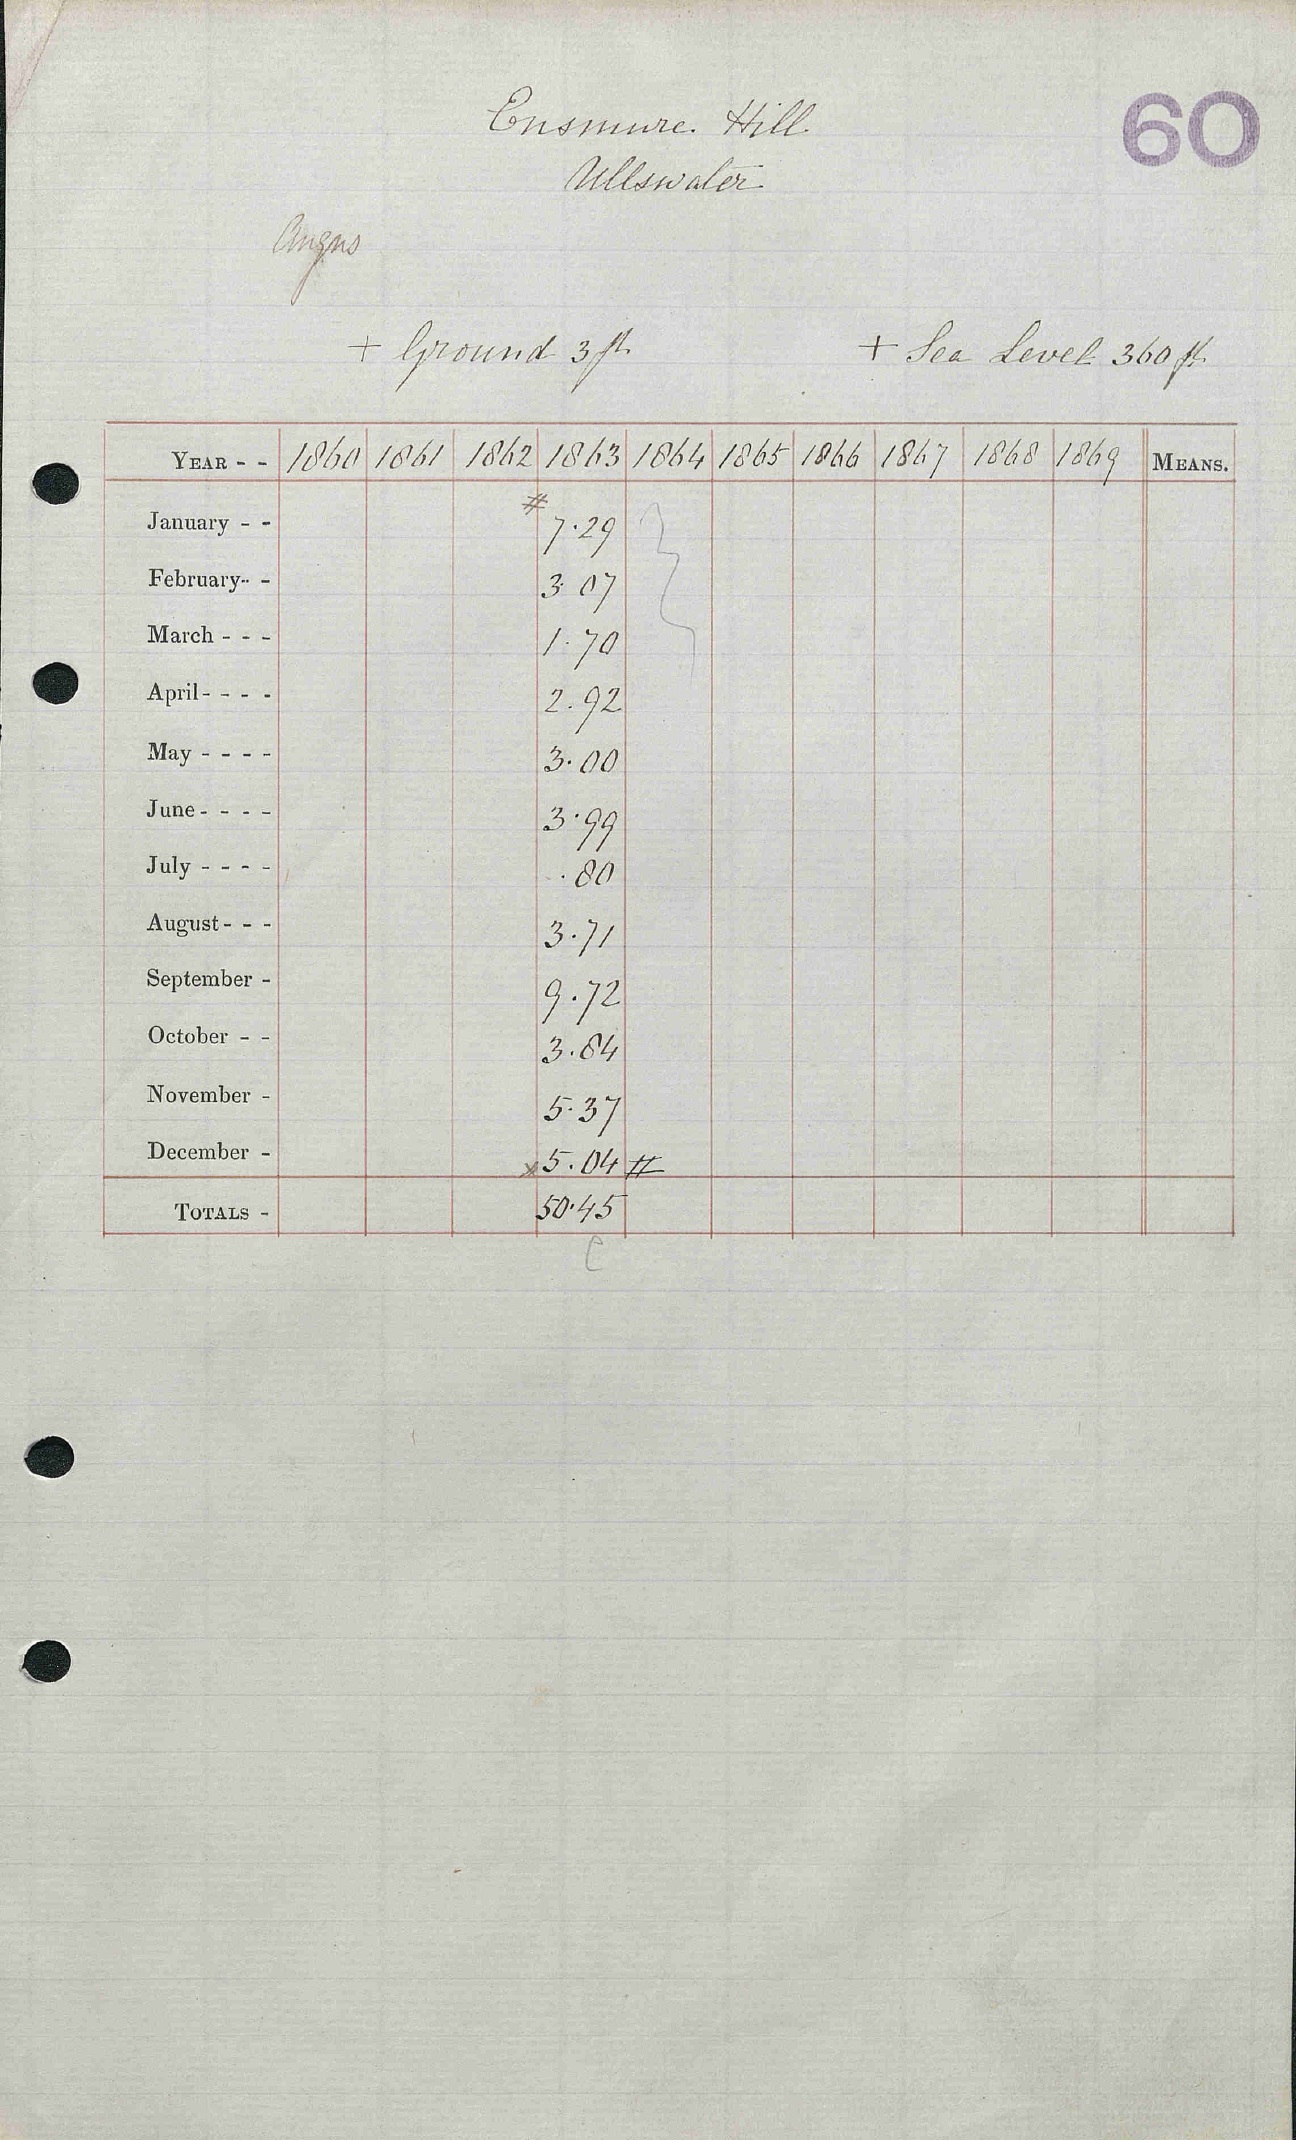 60
Ensmure Hill
Ullswater
Angus
+ Ground 3 ft + Sea Level 360 ft
YEAR - - 1860 1861 1862 1863 1864 1865 1866 1867 1868 1869 MEANS.
January - - # 7.29
February - - 3.07
March - - - 1.70
April - - - - 2.92
May - - - - 3.00
June - - - - 3.99
July - - - - .80
August - - - 3.71
September - 9.72
October - - 3.84
November - 5.37
December - x 5.04 #
TOTALS - 50.45
C